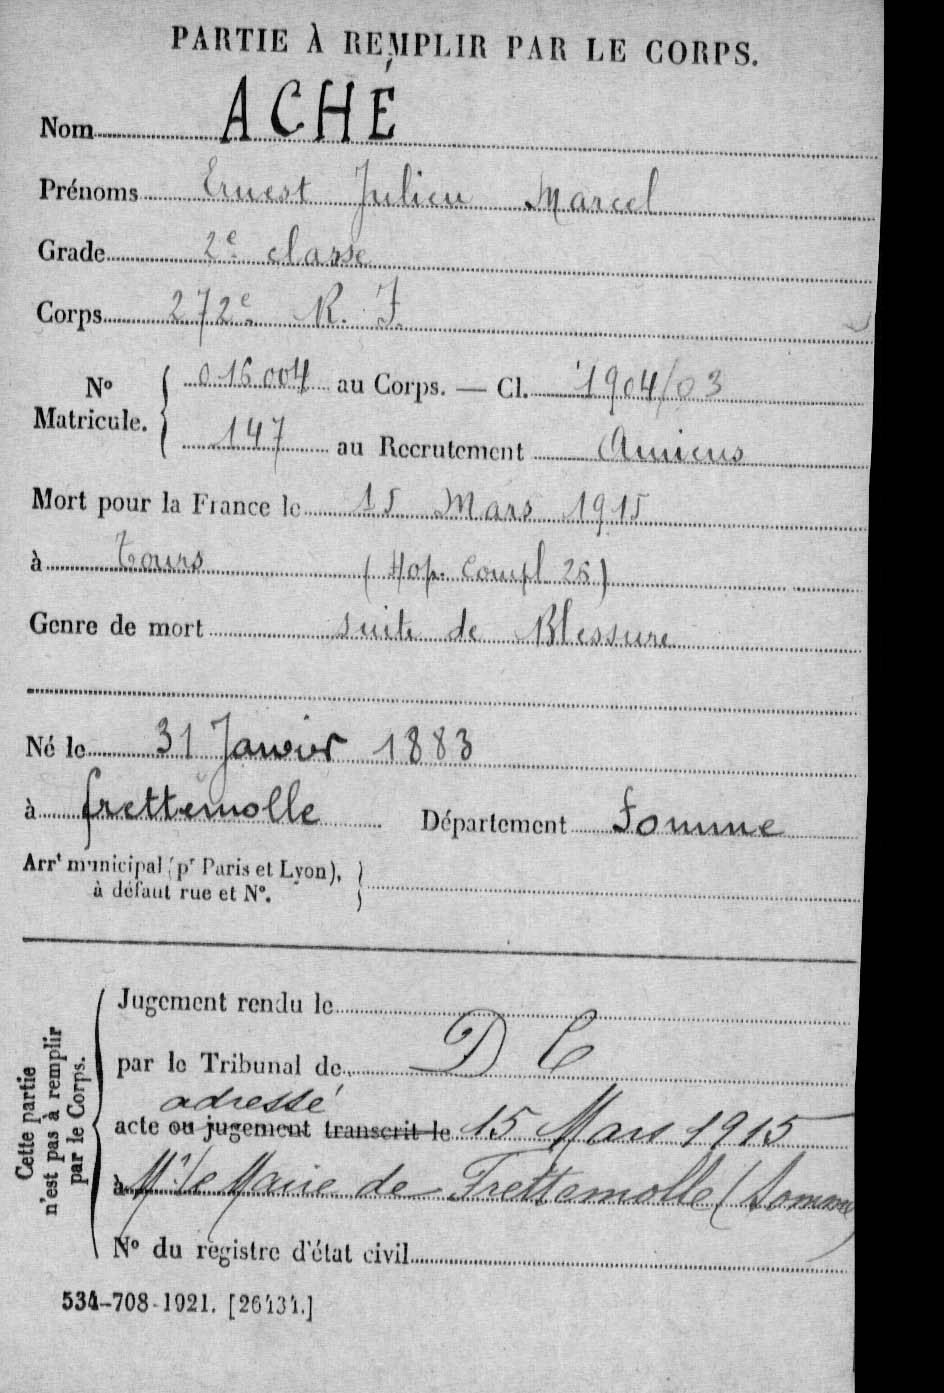 PARTIE À REMPLIR PAR LE CORPS.
Nom ACHÉ
Prénoms Ernest Julien Marcel
Grade 2e classe
Corps 272e R. I.
No Matricule. { 016004 au Corps. — Cl. 1904/03
147 au Recrutement Amiens
Mort pour la France le 15 Mars 1915
à Tours (Hop. Compl 26)
Genre de mort suite de Blessure
Né le 31 Janvier 1883
à frettemolle Département Somme
Arrt municipal (pr Paris et Lyon),
à défaut rue et No.
Cette partie
n'est pas à remplir
par le Corps.
Jugement rendu le
par le Tribunal de D C
adressé
acte ou jugement transcrit le 15 Mars 1915
à Mr le Maire de Frettemolle (Somme)
No du registre d'état civil
534-708-1921. [26434.]